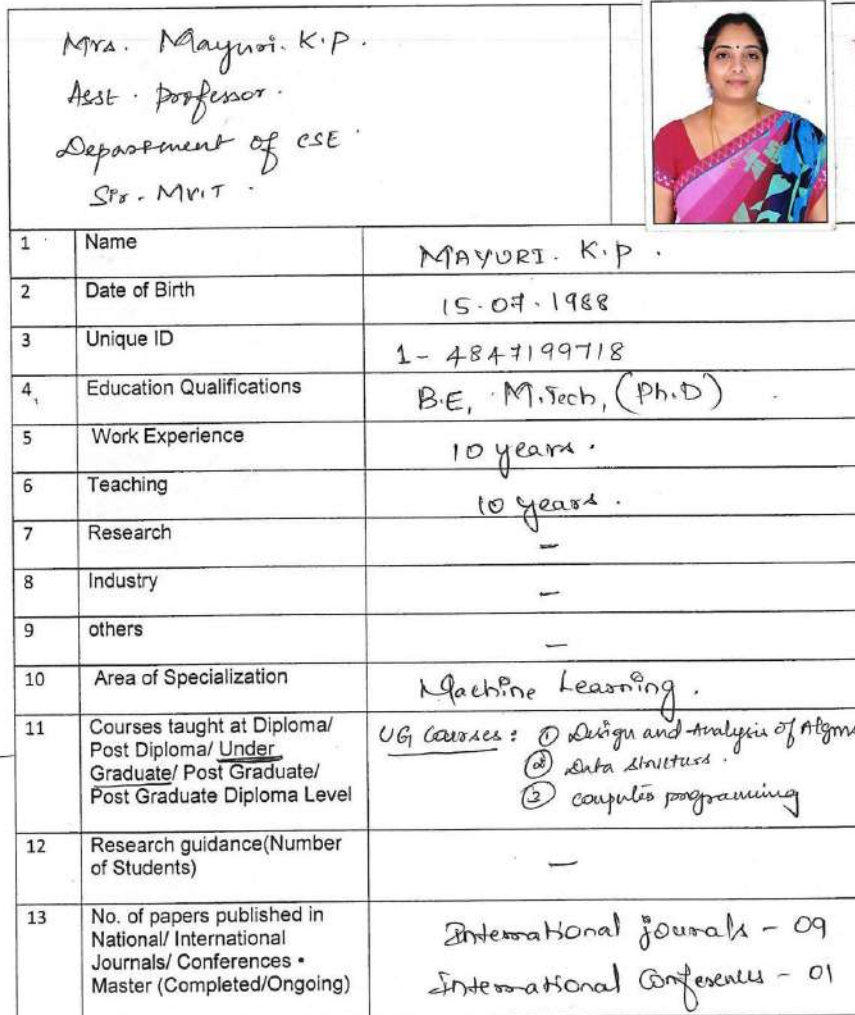 Mrs. Mayuri. K.P.
Asst. Professor.
Department of CSE
Sir. MVIT.
1 Name MAYURI. K.P.
2 Date of Birth 15.07.1988
3 Unique ID 1-4847199718
4 Education Qualifications B.E, M.Tech, (Ph.D)
5 Work Experience 10 years.
6 Teaching 10 years.
7 Research –
8 Industry –
9 others –
10 Area of Specialization Machine Learning.
11 Courses taught at Diploma/
Post Diploma/ Under
Graduate/ Post Graduate/
Post Graduate Diploma Level
UG Courses: ① Design and Analysis of Algms
② Data structures.
③ computer programming
12 Research guidance(Number
of Students) –
13 No. of papers published in
National/ International
Journals/ Conferences •
Master (Completed/Ongoing)
International journals - 09
International Conferences - 01